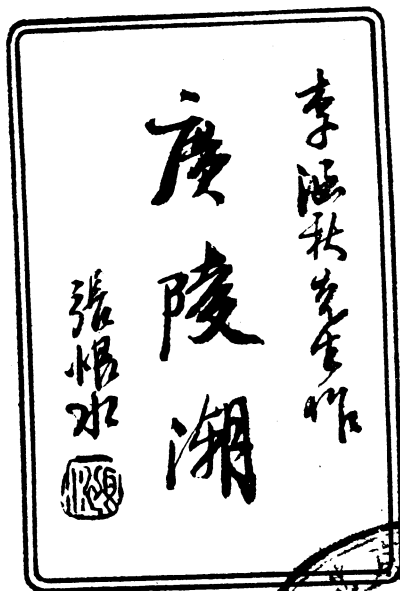 李涵秋先生作
廣陵潮
張恨水